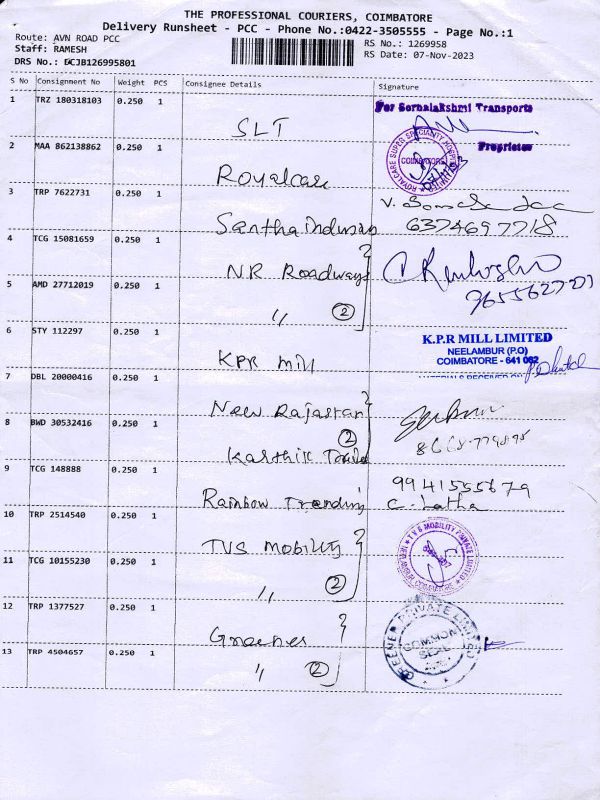 THE PROFESSIONAL COURIERS, COIMBATORE
Delivery Runsheet - PCC - Phone No.:0422-3505555 - Page No.:1
Route: AVN ROAD PCC
RS No.: 1269958
Staff: RAMESH
RS Date: 07-Nov-2023
DRS No.: DCJB126995801
S No Consignment No Weight PCS Consignee Details Signature
1 TRZ 180318103 0.250 1 SLT For Sornalakshmi Transports
Proprietor
2 MAA 862138862 0.250 1 Royalcare ROYALCARE SUPER SPECIALITY HOSPITAL COIMBATORE
3 TRP 7622731 0.250 1 Santha Indusas 6374697718
4 TCG 15081659 0.250 1 N.R Roadways
5 AMD 27712019 0.250 1 " 2
6 STY 112297 0.250 1 KPR Mill K.P.R MILL LIMITED
NEELAMBUR (P.O)
COIMBATORE - 641 062
7 DBL 20000416 0.250 1 New Rajastan
8 BWD 30532416 0.250 1 Karthik 2
9 TCG 148888 0.250 1 Rainbow Trending 9941555679
C. Latha
10 TRP 2514540 0.250 1 TVS Mobility TVS MOBILITY PRIVATE LIMITED
11 TCG 10155230 0.250 1 " 2
12 TRP 1377527 0.250 1 Greenes PRIVATE LIMITED
COMMON
SEAL
13 TRP 4504657 0.250 1 " 2